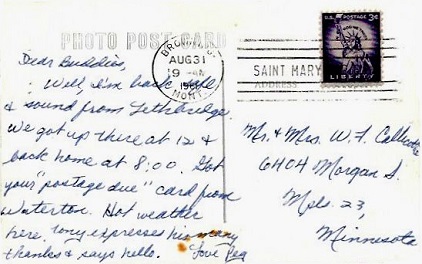 PHOTO POST CARD
BROWNING
AUG 31
9 AM
MONT.
U.S. POSTAGE 3¢
LIBERTY
SAINT MARY
ADDRESS
Dear Buddies,
Well, I'm back safe
& sound from Lethbridge.
We got up there at 12 &
back home at 8:00. Got
your "postage due" card from
Waterton. Hot weather
here. Tony expresses his many
thanks & says hello. Love Peg
Mr. & Mrs. W. F.
6404 Morgan S.
Mpls. 23,
Minnesota